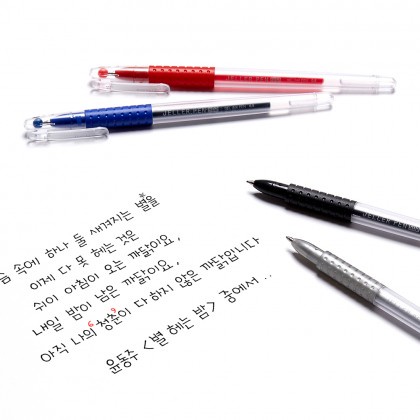 JELLER PEN
JELLER PEN
JELLER PEN
JELLER PEN
속에 하나 둘 새겨지는 별을
이제 다 못 헤는 것은
쉬이 아침이 오는 까닭이요,
내일 밤이 남은 까닭이요,
아직 나의 청춘이 다 하지 않은 까닭입니다
윤동주 <별 헤는 밤> 중에서..